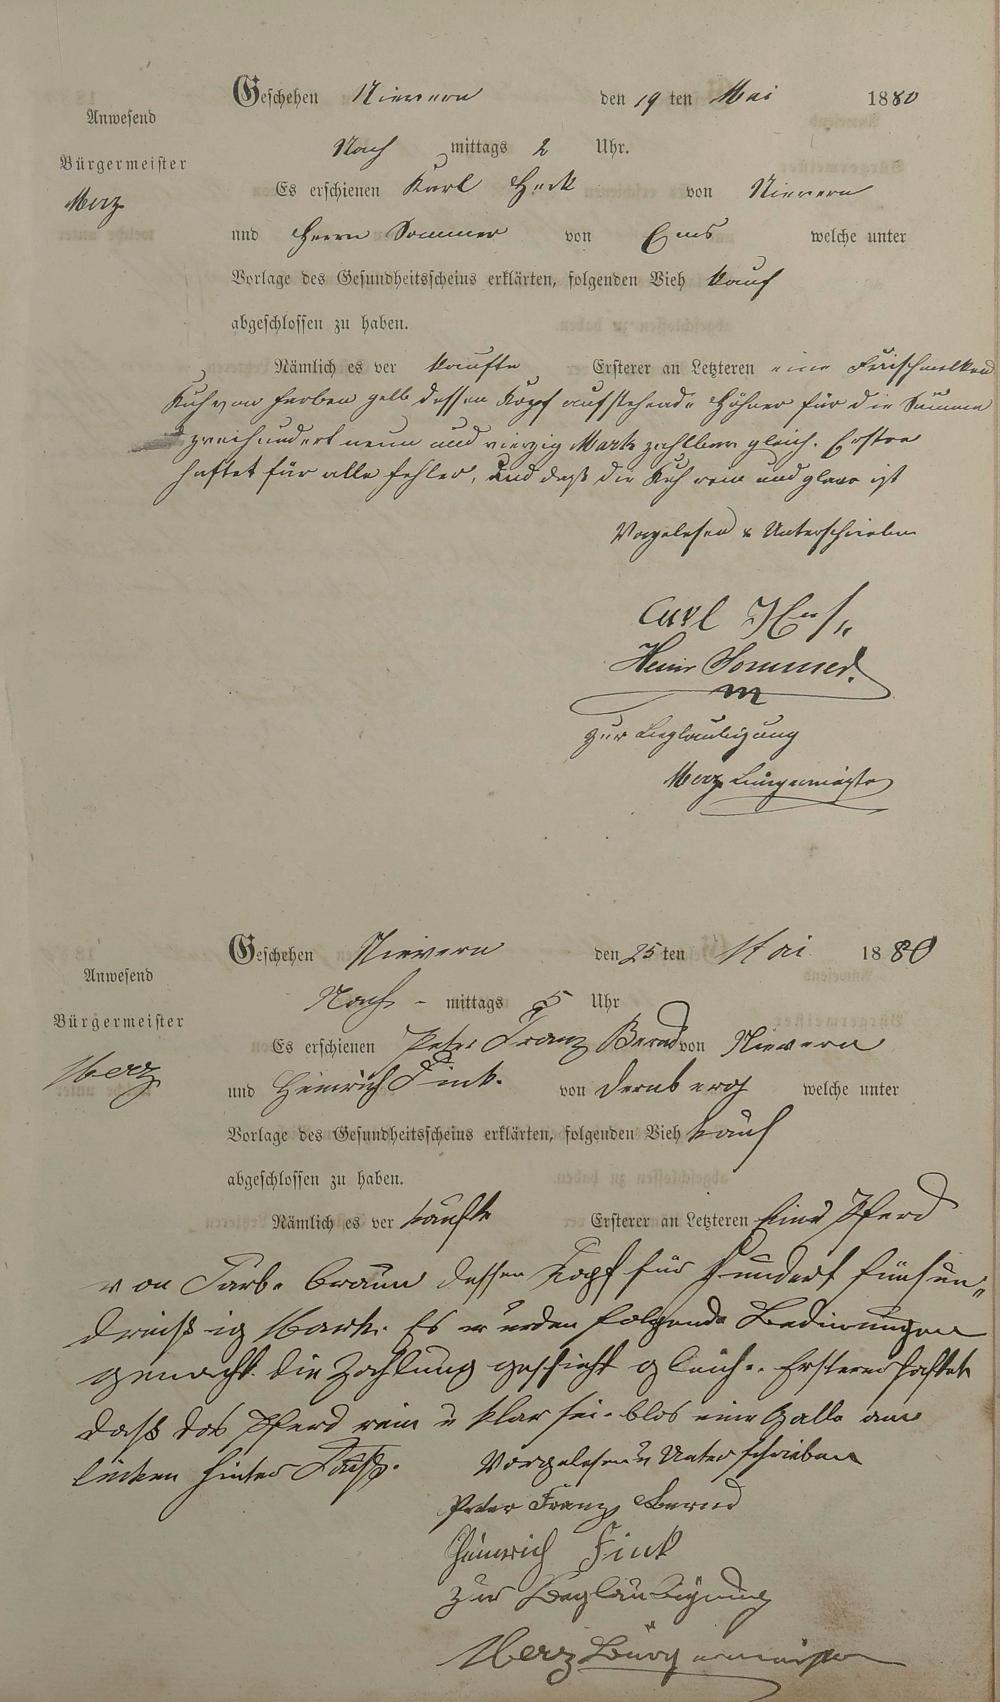 Geschehen Nievern den 19 ten Mai 1880
Anwesend
Nach mittags 2 Uhr.
Bürgermeister
Es erschienen Karl von Nievern
Merz
und Herrn Sommer von Ems welche unter
Vorlage des Gesundheitsscheins erklärten, folgenden Vieh kauf
abgeschlossen zu haben.
Nämlich es ver kaufte Ersterer an Letzteren eine Frischmelken
Kuh von farben gelb dessen Kopf aufstehende Höhner für die Summe
zweihundert neun und vierzig Mark zahlbar gleich. Erstre
haftet für alle fehler, und daß die Kuh rein und ist
Vorgelesen & Unterschrieben
Carl
Heinr Sommer.
zur Beglaubigung
Merz Bürgermeister
Geschehen Nievern den 25 ten Mai 1880
Anwesend
Nach - mittags 5 Uhr
Bürgermeister
Es erschienen Peter Franz Bernd von Nievern
Merz
und Heinrich Fink. von Dernberg welche unter
Vorlage des Gesundheitsscheins erklärten, folgenden Vieh kauf
abgeschlossen zu haben.
Nämlich es ver kaufte Ersterer an Letzteren Eine Pferd
von Farbe braun dessen Kopf für Hundert fünfun„
dreißig Mark. Es werden folgende Bedinnungen
gemacht. die Zahlung geschieht gleich. Ersterer haftet
daß das Pferd rein u klar sei. blos eine Galle am
linken hinter Fuß.
Vorgelesen u Unterschrieben
Peter Franz Bernd
Heinrich Fink
zur Beglaubigung
Merz Bürgermeister